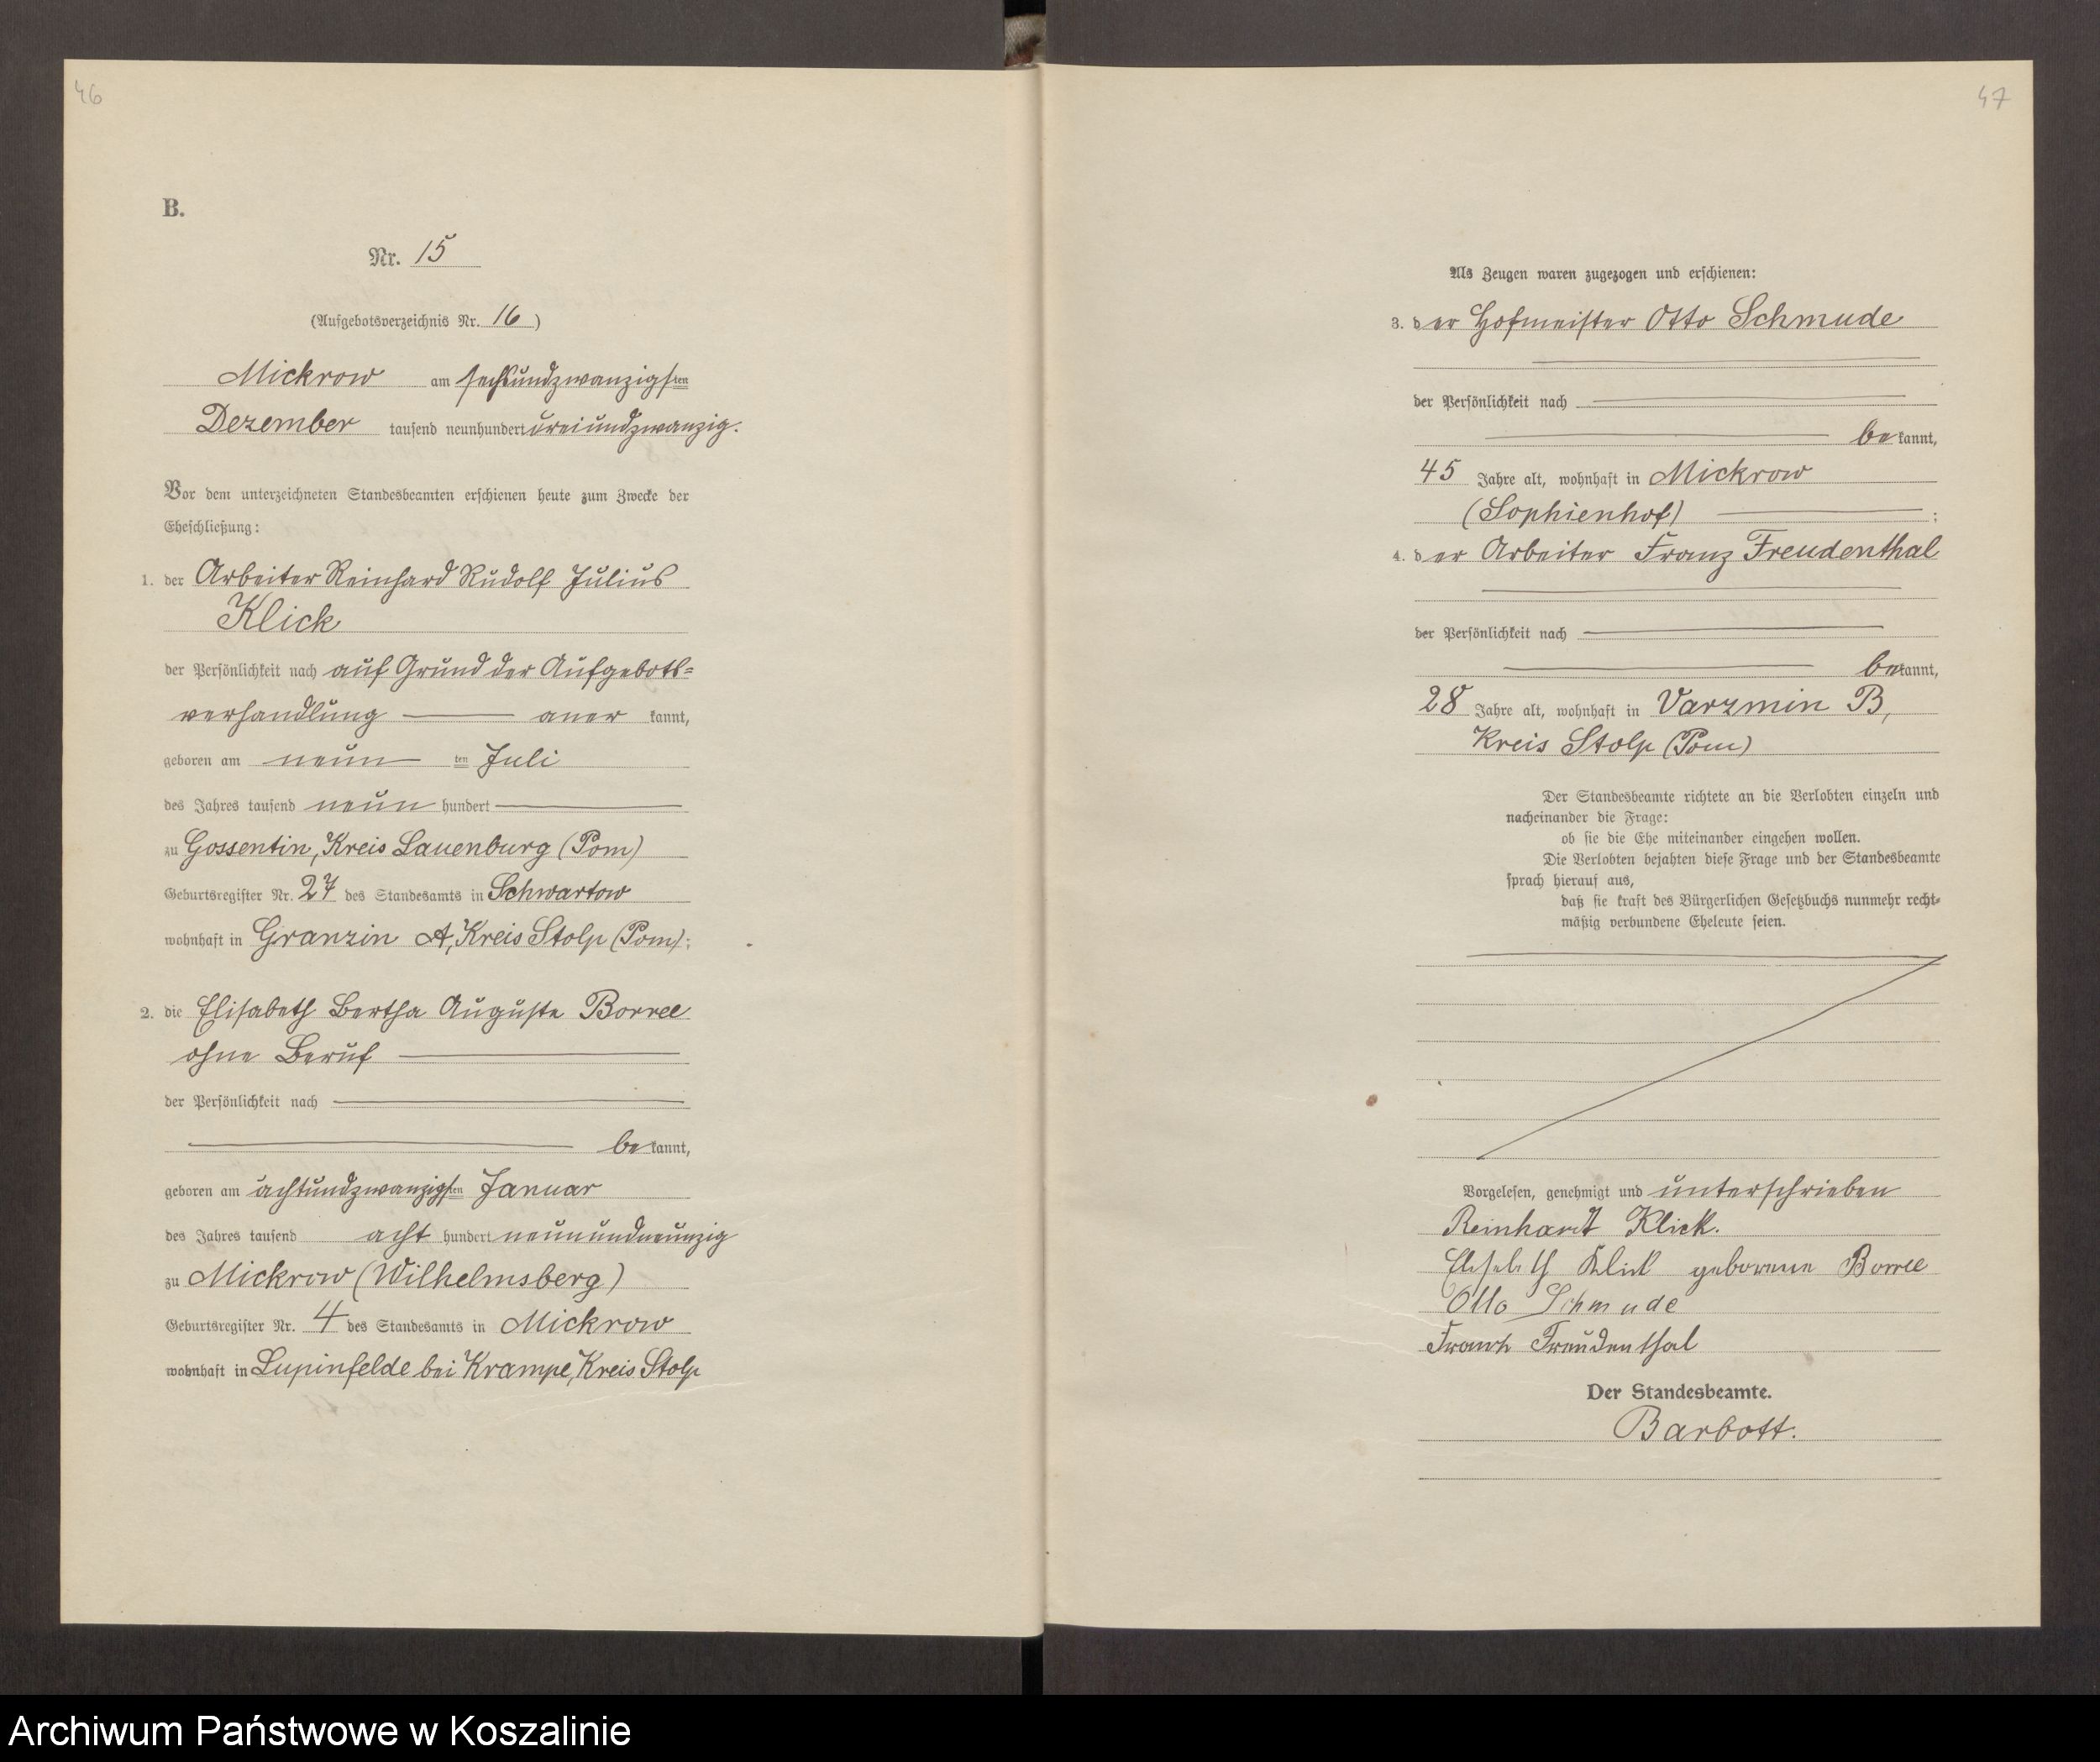 46
B.
Nr. 15
(Aufgebotsverzeichnis Nr. 16)
Mickrow am sechsundzwanzigsten
Dezember tausend neunhundert dreiundzwanzig.
Vor dem unterzeichneten Standesbeamten erschienen heute zum Zwecke der
Eheschließung:
1. der Arbeiter Reinhard Rudolf Julius
Klick
der Persönlichkeit nach auf Grund der Aufgebots=
verhandlung aner kannt,
geboren am neun ten Juli
des Jahres tausend neun hundert
zu Gossentin, Kreis Lauenburg (Pom)
Geburtsregister Nr. 27 des Standesamts in Schwartow
wohnhaft in Granzin A, Kreis Stolp (Pom);
2. die Elisabeth Bertha Auguste Borree
ohne Beruf
der Persönlichkeit nach
be kannt,
geboren am achtundzwanzigsten Januar
des Jahres tausend acht hundert neunundneunzig
zu Mickrow (Wilhelmsberg)
Geburtsregister Nr. 4 des Standesamts in Mickrow
wohnhaft in Lupinfelde bei Krampe, Kreis Stolp
47
Als Zeugen waren zugezogen und erschienen:
3. der Hofmeister Otto Schmude
der Persönlichkeit nach
be kannt,
45 Jahre alt, wohnhaft in Mickrow
(Sophienhof) ;
4. der Arbeiter Franz Freudenthal
der Persönlichkeit nach
be kannt,
28 Jahre alt, wohnhaft in Varzmin B,
Kreis Stolp (Pom)
Der Standesbeamte richtete an die Verlobten einzeln und
nacheinander die Frage:
ob sie die Ehe miteinander eingehen wollen.
Die Verlobten bejahten diese Frage und der Standesbeamte
sprach hierauf aus,
daß sie kraft des Bürgerlichen Gesetzbuchs nunmehr recht=
mäßig verbundene Eheleute seien.
Vorgelesen, genehmigt und unterschrieben
Reinhardt Klick.
Elisabeth Klick geborene Borree
Otto Schmude
Franz Freudenthal
Der Standesbeamte.
Barbott.
Archiwum Państwowe w Koszalinie